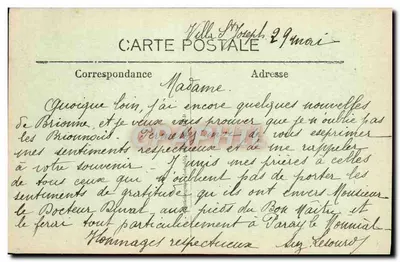 Villa St Joseph 29 mai
CARTE POSTALE
Correspondance Adresse
Madame.
Quoique loin, j'ai encore quelques nouvelles
de Brionne, et je veux vous prouver que je n'oublie pas
les Brionnais. à vous exprimer
mes sentiments respectueux et à me rappeler
à votre souvenir - J'unis mes prières à celles
de tous ceux qui n'oublient pas de porter les
sentiments de gratitude qu'ils ont envers Monsieur
le Docteur aux pieds du Bon Maître et
le ferai tout particulièrement à Paray le Monial
Hommages respectueux